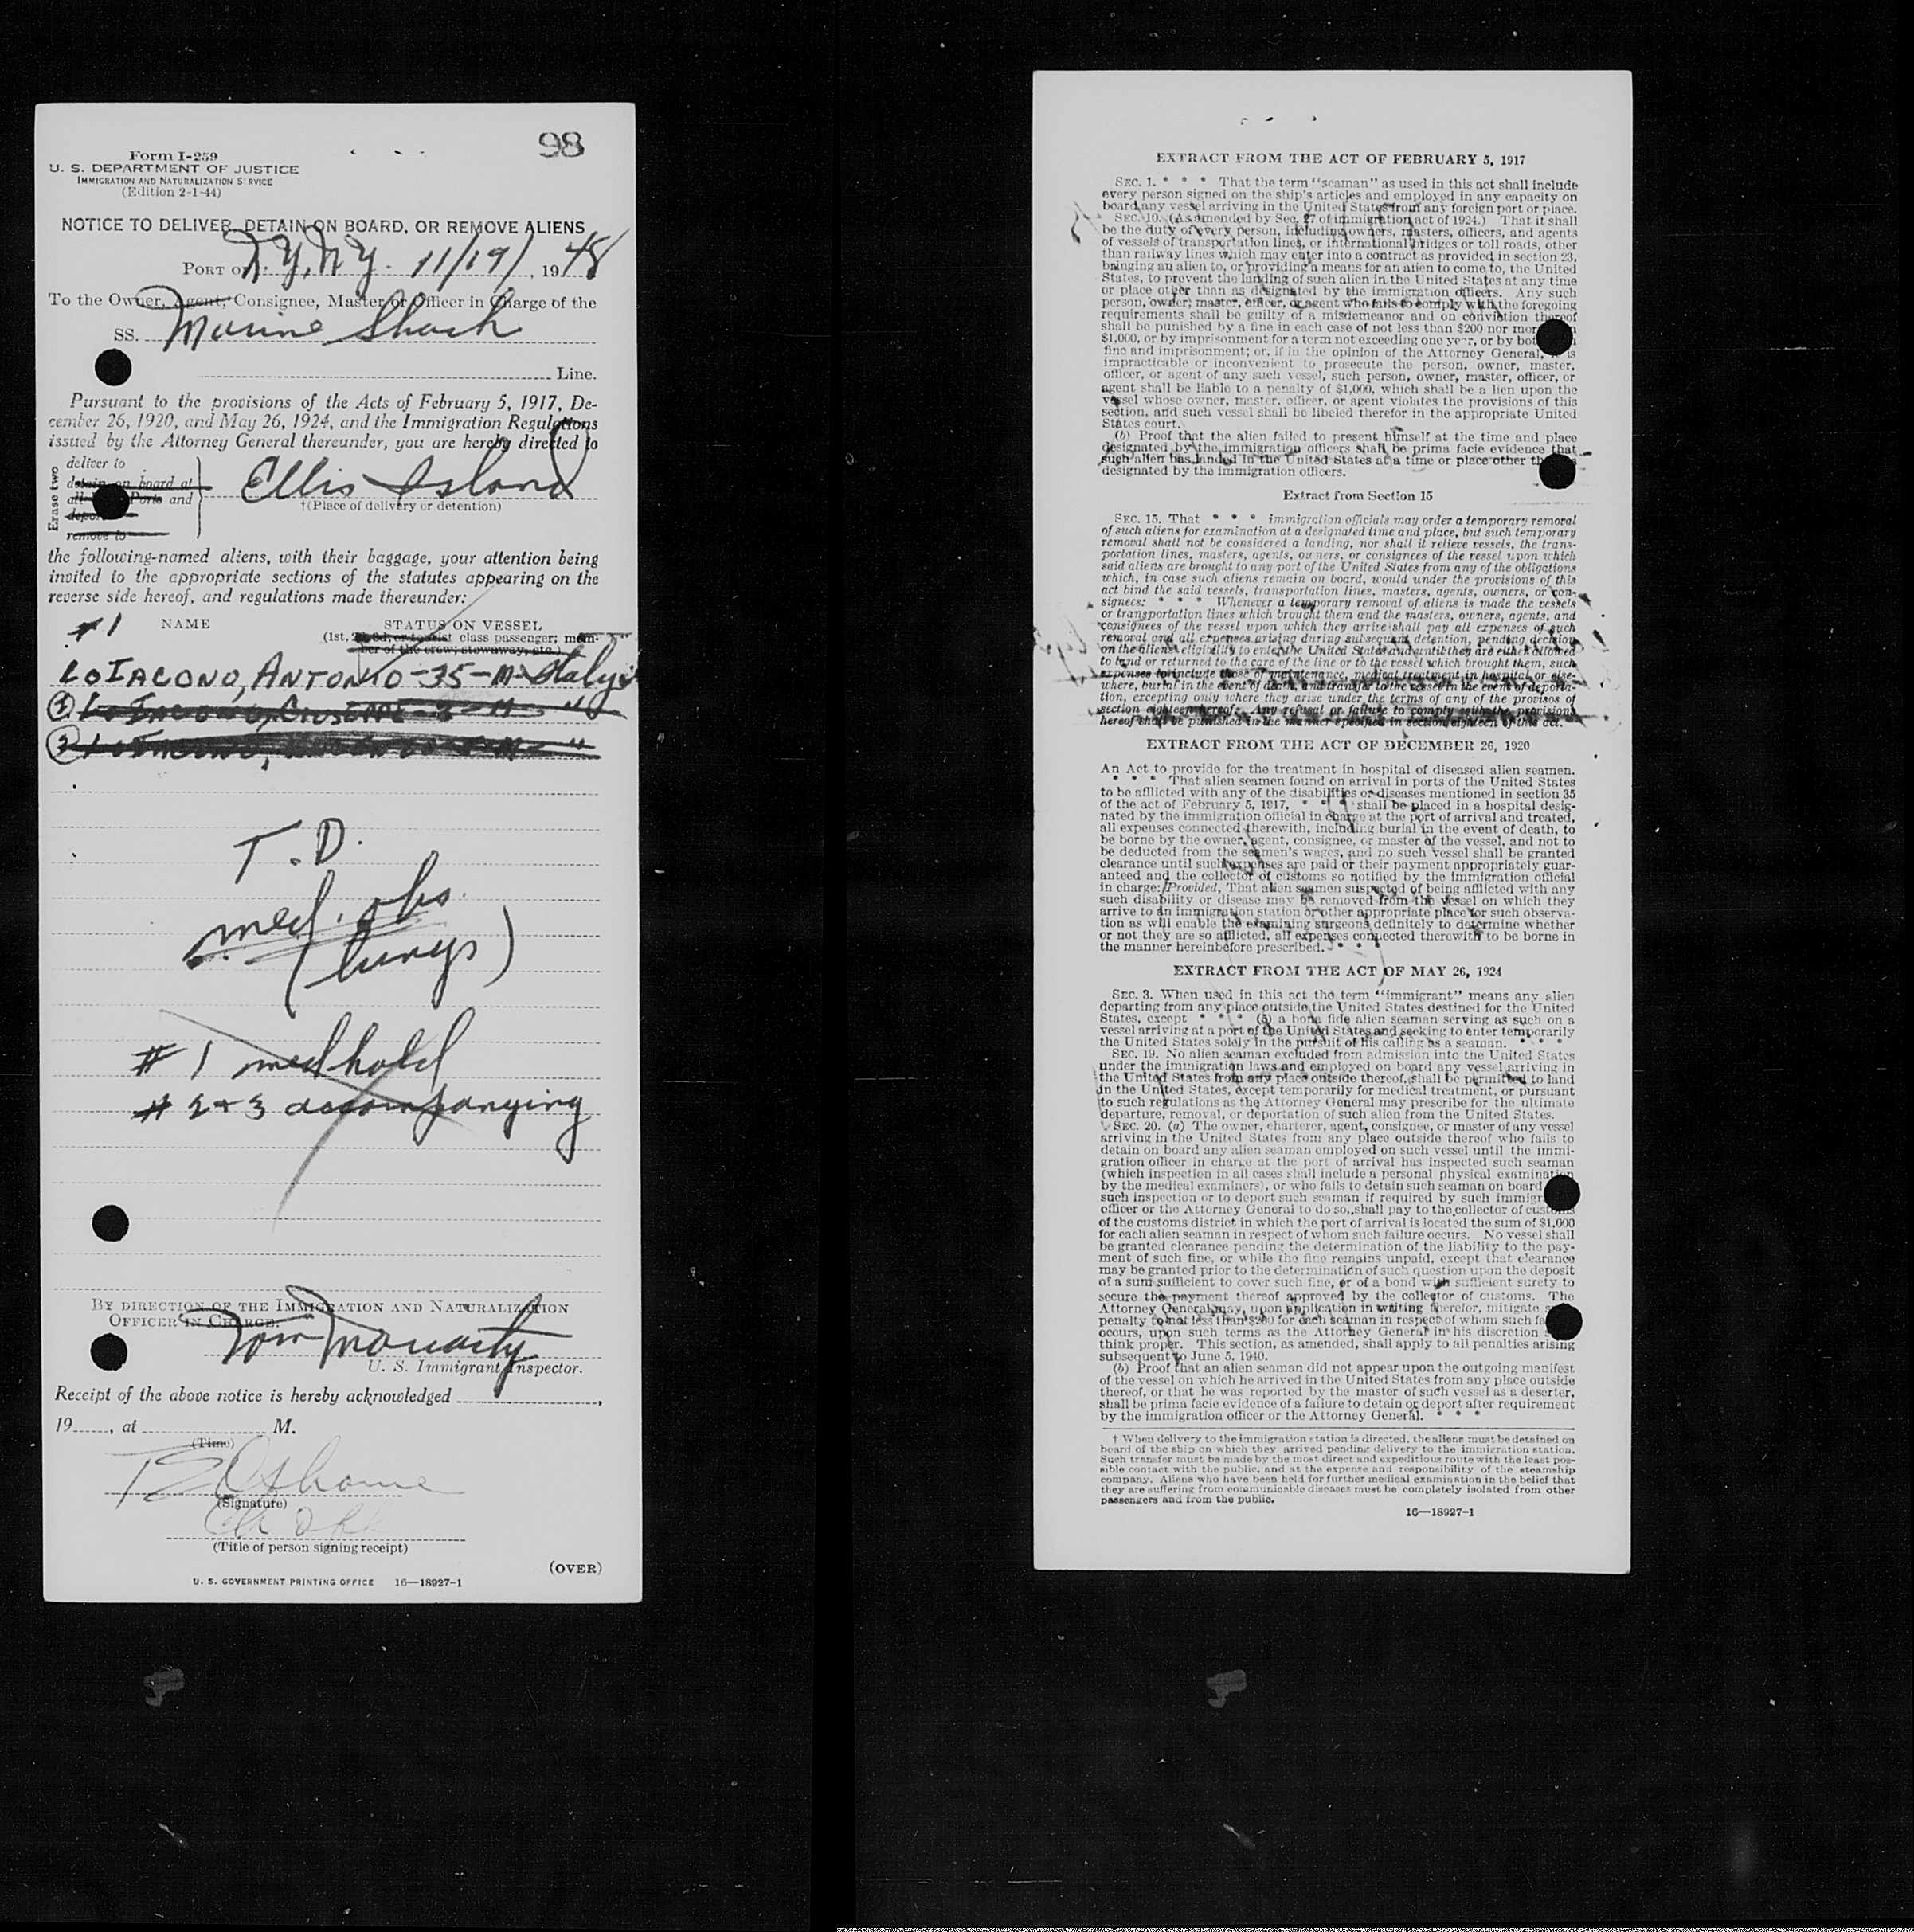 98
Form I-259
U. S. DEPARTMENT OF JUSTICE
IMMIGRATION AND NATURALIZATION SERVICE
(Edition 2-1-44)
NOTICE TO DELIVER, DETAIN ON BOARD, OR REMOVE ALIENS
PORT OF N.Y., N.Y. 11/19/, 1948
To the Owner, Agent, Consignee, Master or Officer in Charge of the
SS. Marine Shark
Line.
Pursuant to the provisions of the Acts of February 5, 1917, De-
cember 26, 1920, and May 26, 1924, and the Immigration Regulations
issued by the Attorney General thereunder, you are hereby directed to
Erase two
deliver to
detain on board at
all Ports and
deport
remove to
Ellis Island
†(Place of delivery or detention)
the following-named aliens, with their baggage, your attention being
invited to the appropriate sections of the statutes appearing on the
reverse side hereof, and regulations made thereunder:
#1 NAME STATUS ON VESSEL
(1st, 2d, 3d, or tourist class passenger; mem-
ber of the crew; stowaway, etc.)
LOIACONO, ANTONIO - 35 - M - Italy
LOIACONO, GIUSEPPE - M - "
LOIACONO, M - "
T.D.
med. obs.
(lungs)
# 1 med hold
# 2 + 3 accompanying
BY DIRECTION OF THE IMMIGRATION AND NATURALIZATION
OFFICER IN CHARGE.
Tom Moriarty
U. S. Immigrant Inspector.
Receipt of the above notice is hereby acknowledged
19 , at M.
(Time)
T E Osborne
(Signature)
(Title of person signing receipt)
(OVER)
U. S. GOVERNMENT PRINTING OFFICE 16—18927-1
EXTRACT FROM THE ACT OF FEBRUARY 5, 1917
SEC. 1. * * * That the term "seaman" as used in this act shall include
every person signed on the ship's articles and employed in any capacity on
board any vessel arriving in the United States from any foreign port or place.
SEC. 10. (As amended by Sec. 27 of immigration act of 1924.) That it shall
be the duty of every person, including owners, masters, officers, and agents
of vessels of transportation lines, or international bridges or toll roads, other
than railway lines which may enter into a contract as provided in section 23,
bringing an alien to, or providing a means for an alien to come to, the United
States, to prevent the landing of such alien in the United States at any time
or place other than as designated by the immigration officers. Any such
person, owner, master, officer, or agent who fails to comply with the foregoing
requirements shall be guilty of a misdemeanor and on conviction thereof
shall be punished by a fine in each case of not less than $200 nor mor
$1,000, or by imprisonment for a term not exceeding one year, or by bot
fine and imprisonment; or, if in the opinion of the Attorney General, it is
impracticable or inconvenient to prosecute the person, owner, master,
officer, or agent of any such vessel, such person, owner, master, officer, or
agent shall be liable to a penalty of $1,000, which shall be a lien upon the
vessel whose owner, master, officer, or agent violates the provisions of this
section, and such vessel shall be libeled therefor in the appropriate United
States court.
(b) Proof that the alien failed to present himself at the time and place
designated by the immigration officers shall be prima facie evidence that
such alien has landed in the United States at a time or place other th
designated by the immigration officers.
Extract from Section 15
SEC. 15. That * * * immigration officials may order a temporary removal
of such aliens for examination at a designated time and place, but such temporary
removal shall not be considered a landing, nor shall it relieve vessels, the trans-
portation lines, masters, agents, owners, or consignees of the vessel upon which
said aliens are brought to any port of the United States from any of the obligations
which, in case such aliens remain on board, would under the provisions of this
act bind the said vessels, transportation lines, masters, agents, owners, or con-
signees: * * * Whenever a temporary removal of aliens is made the vessels
or transportation lines which brought them and the masters, owners, agents, and
consignees of the vessel upon which they arrive shall pay all expenses of such
removal and all expenses arising during subsequent detention, pending decision
on the aliens' eligibility to enter the United States and until they are either allowed
to land or returned to the care of the line or to the vessel which brought them, such
expenses to include those of maintenance, medical treatment in hospital or else-
where, burial in the event of death, and transfer to the vessel in the event of deporta-
tion, excepting only where they arise under the terms of any of the provisos of
section eighteen hereof. Any refusal or failure to comply with the provisions
hereof shall be punished in the manner specified in section eighteen of this act.
EXTRACT FROM THE ACT OF DECEMBER 26, 1920
An Act to provide for the treatment in hospital of diseased alien seamen.
* * * That alien seamen found on arrival in ports of the United States
to be afflicted with any of the disabilities or diseases mentioned in section 35
of the act of February 5, 1917, * * * shall be placed in a hospital desig-
nated by the immigration official in charge at the port of arrival and treated,
all expenses connected therewith, including burial in the event of death, to
be borne by the owner, agent, consignee, or master of the vessel, and not to
be deducted from the seamen's wages, and no such vessel shall be granted
clearance until such expenses are paid or their payment appropriately guar-
anteed and the collector of customs so notified by the immigration official
in charge: Provided, That alien seamen suspected of being afflicted with any
such disability or disease may be removed from the vessel on which they
arrive to an immigration station or other appropriate place for such observa-
tion as will enable the examining surgeons definitely to determine whether
or not they are so afflicted, all expenses connected therewith to be borne in
the manner hereinbefore prescribed. * * *
EXTRACT FROM THE ACT OF MAY 26, 1924
SEC. 3. When used in this act the term "immigrant" means any alien
departing from any place outside the United States destined for the United
States, except * * * (5) a bona fide alien seaman serving as such on a
vessel arriving at a port of the United States and seeking to enter temporarily
the United States solely in the pursuit of his calling as a seaman. * * * *
SEC. 19. No alien seaman excluded from admission into the United States
under the immigration laws and employed on board any vessel arriving in
the United States from any place outside thereof, shall be permitted to land
in the United States, except temporarily for medical treatment, or pursuant
to such regulations as the Attorney General may prescribe for the ultimate
departure, removal, or deportation of such alien from the United States.
SEC. 20. (a) The owner, charterer, agent, consignee, or master of any vessel
arriving in the United States from any place outside thereof who fails to
detain on board any alien seaman employed on such vessel until the immi-
gration officer in charge at the port of arrival has inspected such seaman
(which inspection in all cases shall include a personal physical examination
by the medical examiners), or who fails to detain such seaman on board
such inspection or to deport such seaman if required by such immigr
officer or the Attorney General to do so, shall pay to the collector of customs
of the customs district in which the port of arrival is located the sum of $1,000
for each alien seaman in respect of whom such failure occurs. No vessel shall
be granted clearance pending the determination of the liability to the pay-
ment of such fine, or while the fine remains unpaid, except that clearance
may be granted prior to the determination of such question upon the deposit
of a sum sufficient to cover such fine, or of a bond with sufficient surety to
secure the payment thereof approved by the collector of customs. The
Attorney General may, upon application in writing therefor, mitigate s
penalty to not less than $200 for each seaman in respect of whom such fa
occurs, upon such terms as the Attorney General in his discretion
think proper. This section, as amended, shall apply to all penalties arising
subsequent to June 5, 1940.
(b) Proof that an alien seaman did not appear upon the outgoing manifest
of the vessel on which he arrived in the United States from any place outside
thereof, or that he was reported by the master of such vessel as a deserter,
shall be prima facie evidence of a failure to detain or deport after requirement
by the immigration officer or the Attorney General. * * *
† When delivery to the immigration station is directed, the aliens must be detained on
board of the ship on which they arrived pending delivery to the immigration station.
Such transfer must be made by the most direct and expeditious route with the least pos-
sible contact with the public, and at the expense and responsibility of the steamship
company. Aliens who have been held for further medical examination in the belief that
they are suffering from communicable diseases must be completely isolated from other
passengers and from the public.
16—18927-1